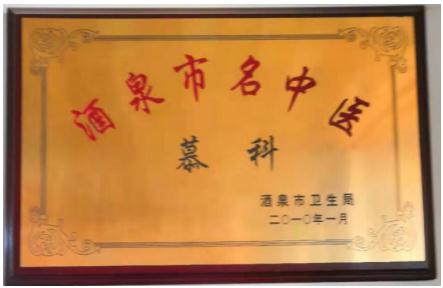 酒泉市名中医
慕科
酒泉市卫生局
二〇一〇年一月